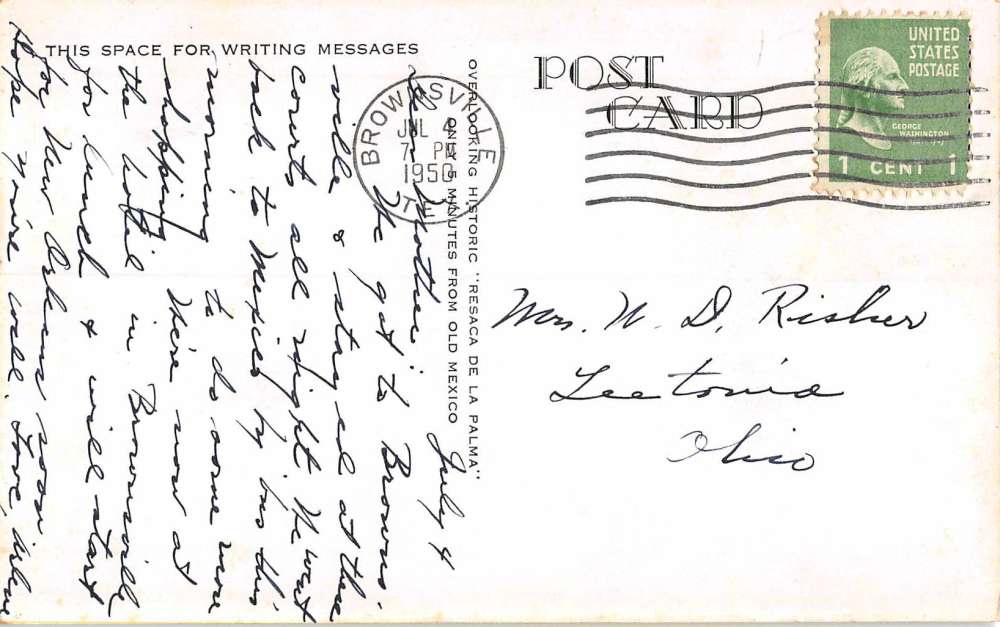 THIS SPACE FOR WRITING MESSAGES
OVERLOOKING HISTORIC "RESACA DE LA PALMA"
ONLY 5 MINUTES FROM OLD MEXICO
POST
CARD
UNITED
STATES
POSTAGE
GEORGE
WASHINGTON
1 CENT 1
BROWNSVILLE
JUL 4
7 PM
1950
TEX
July 4
Dear Mother:
We got to Browns-
ville & stayed at these
courts all right. We went
back to Mexico by bus this
morning to do some more
shopping. We're now at
the hotel in Brownsville
for lunch & will start
for New Orleans soon.
Hope you're well. Love,
Mrs. W. D. Risher
Leetonia
Ohio